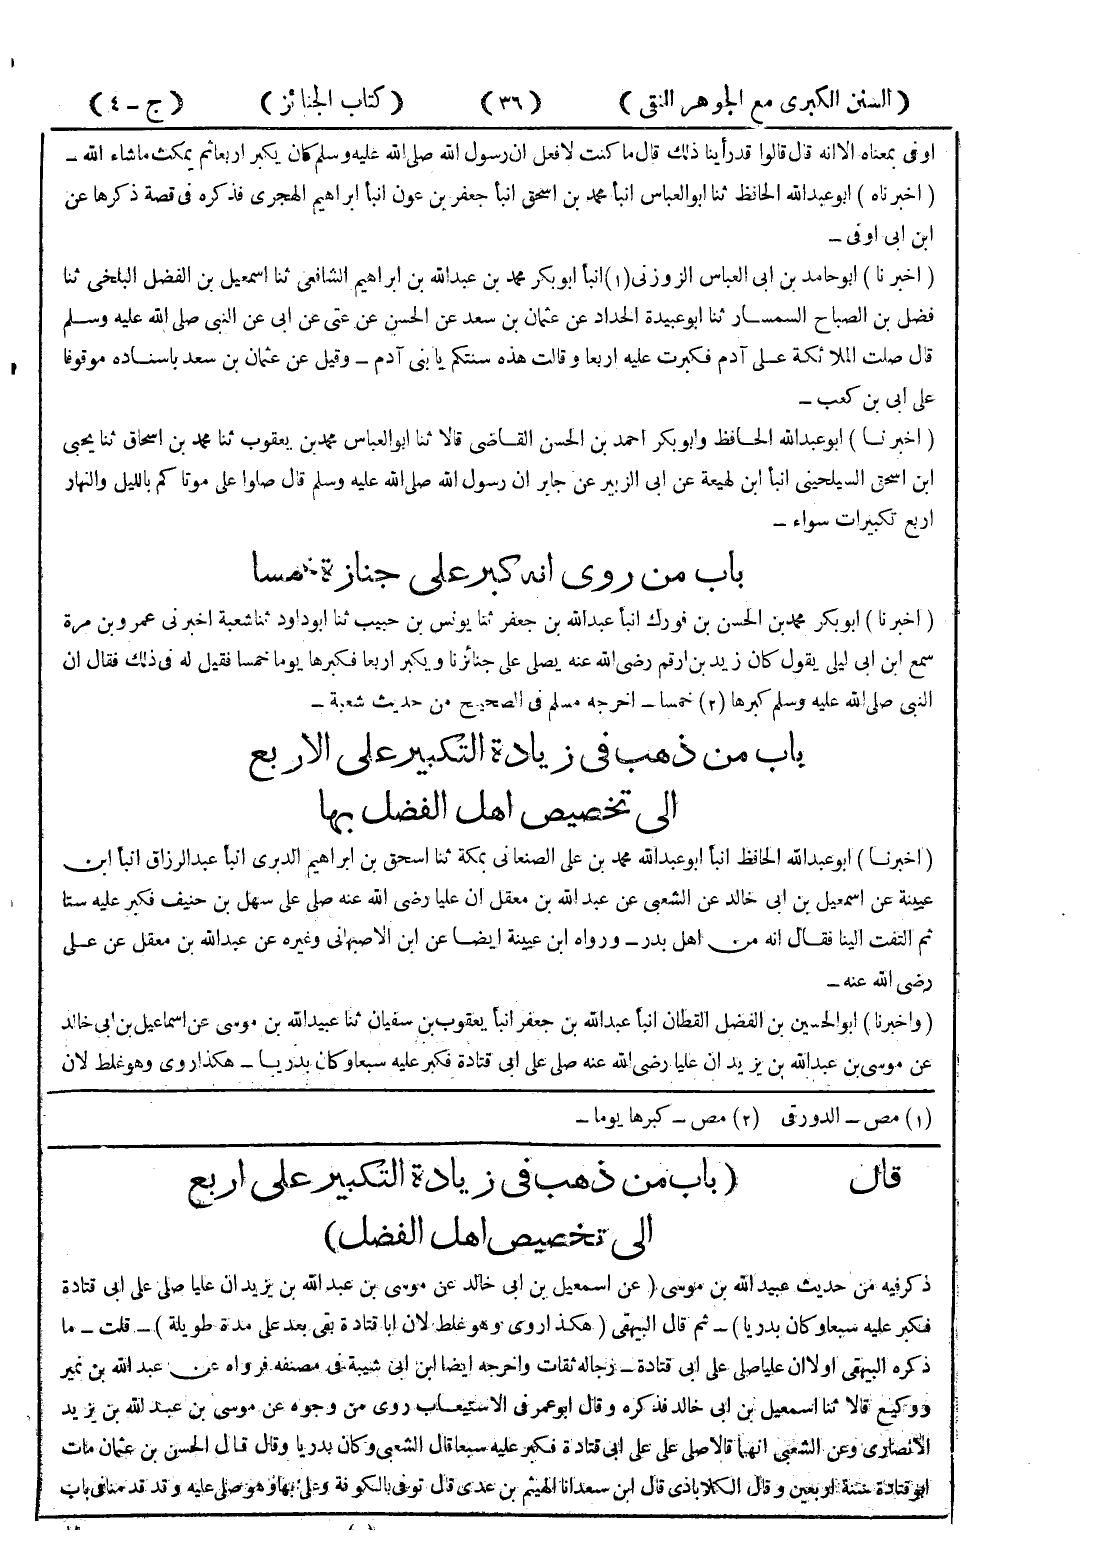 ( السنن الكبرى مع الجوهر النقى ) ( ٣٦ ) ( كتاب الجنائز ) ( ج - ٤ )
اوفى بمعناه الا انه قال قالوا قد رأينا ذلك قال ما كنت لافعل ان رسول الله صلى الله عليه وسلم كان يكبر اربعا ثم يمكث ماشاء الله -
( اخبرناه ) ابوعبدالله الحافظ ثنا ابوالعباس انبأ محمد بن اسحق انبأ جعفر بن عون انبأ ابراهيم الهجرى فذكره فى قصة ذكرها عن
ابن ابى اوفى -
( اخبرنا ) ابوحامد بن ابى العباس الزوزنى (١) انبأ ابوبكر محمد بن عبدالله بن ابراهيم الشافعى ثنا اسمعيل بن الفضل البلخى ثنا
فضل بن الصباح السمسار ثنا ابوعبيدة الحداد عن عثمان بن سعد عن الحسن عن عتى عن ابى عن النبى صلى الله عليه وسلم
قال صلت الملائكة على آدم فكبرت عليه اربعا وقالت هذه سنتكم يا بنى آدم - وقيل عن عثمان بن سعد باسناده موقوفا
على ابى بن كعب -
( اخبرنا ) ابوعبدالله الحافظ وابوبكر احمد بن الحسن القاضى قالا ثنا ابوالعباس محمد بن يعقوب ثنا محمد بن اسحاق ثنا يحيى
ابن اسحق السيلحينى انبأ ابن لهيعة عن ابى الزبير عن جابر ان رسول الله صلى الله عليه وسلم قال صلوا على موتاكم بالليل والنهار
اربع تكبيرات سواء -
باب من روى انه كبر على جنازة خمسا
( اخبرنا ) ابوبكر محمد بن الحسن بن فورك انبأ عبدالله بن جعفر ثنا يونس بن حبيب ثنا ابوداود ثنا شعبة اخبرنى عمرو بن مرة
سمع ابن ابى ليلى يقول كان زيد بن ارقم رضى الله عنه يصلى على جنائزنا ويكبر اربعا فكبرها يوما خمسا فقيل له فى ذلك فقال ان
النبى صلى الله عليه وسلم كبرها (٢) خمسا - اخرجه مسلم فى الصحيح من حديث شعبة -
باب من ذهب فى زيادة التكبير على الاربع
الى تخصيص اهل الفضل بها
( اخبرنا ) ابوعبدالله الحافظ انبأ ابوعبدالله محمد بن على الصنعانى بمكة ثنا اسحق بن ابراهيم الدبرى انبأ عبدالرزاق انبأ ابن
عيينة عن اسمعيل بن ابى خالد عن الشعبى عن عبد الله بن معقل ان عليا رضى الله عنه صلى على سهل بن حنيف فكبر عليه ستا
ثم التفت الينا فقال انه من اهل بدر - ورواه ابن عيينة ايضا عن ابن الاصبهانى وغيره عن عبدالله بن معقل عن على
رضى الله عنه -
( واخبرنا ) ابوالحسين بن الفضل القطان انبأ عبدالله بن جعفر انبأ يعقوب بن سفيان ثنا عبيدالله بن موسى عن اسماعيل بن ابى خالد
عن موسى بن عبدالله بن يزيد ان عليا رضى الله عنه صلى على ابى قتادة فكبر عليه سبعا وكان بدريا - هكذا روى وهو غلط لان
(١) مص - الدورقى (٢) مص - كبرها يوما -
قال ( باب من ذهب فى زيادة التكبير على اربع
الى تخصيص اهل الفضل )
ذكر فيه من حديث عبيد الله بن موسى ( عن اسمعيل بن ابى خالد عن موسى بن عبد الله بن يزيد ان عليا صلى على ابى قتادة
فكبر عليه سبعا وكان بدريا ) - ثم قال البيهقى ( هكذا روى وهو غلط لان ابا قتادة بقى بعد على مدة طويلة ) - قلت - ما
ذكره البيهقى اولا ان عليا صلى على ابى قتادة - رجاله ثقات واخرجه ايضا ابن ابى شيبة فى مصنفه فرواه عن عبد الله بن نمير
ووكيع قالا ثنا اسمعيل بن ابى خالد فذكره وقال ابوعمر فى الاستيعاب روى من وجوه عن موسى بن عبد لله بن يزيد
الانصارى وعن الشعبى انهما قالا صلى على على ابى قتادة فكبر عليه سبعا قال الشعبى وكان بدريا وقال قال الحسن بن عثمان مات
ابوقتادة سنة اربعين وقال الكلاباذى قال ابن سعد انا الهيثم بن عدى قال توفى بالكوفة وعلى بها وهو صلى عليه وقد قدمنا فى باب